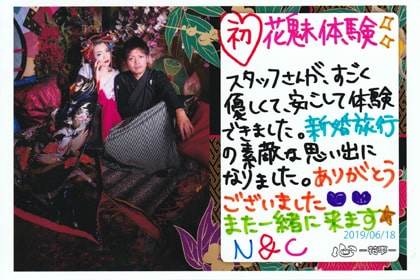 初 花魁体験
スタッフさんが、すごく
優しくて、安心して体験
できました。新婚旅行
の素敵な思い出に
なりました。ありがとう
ございました
また一緒に来ます
2019/06/18
N&C